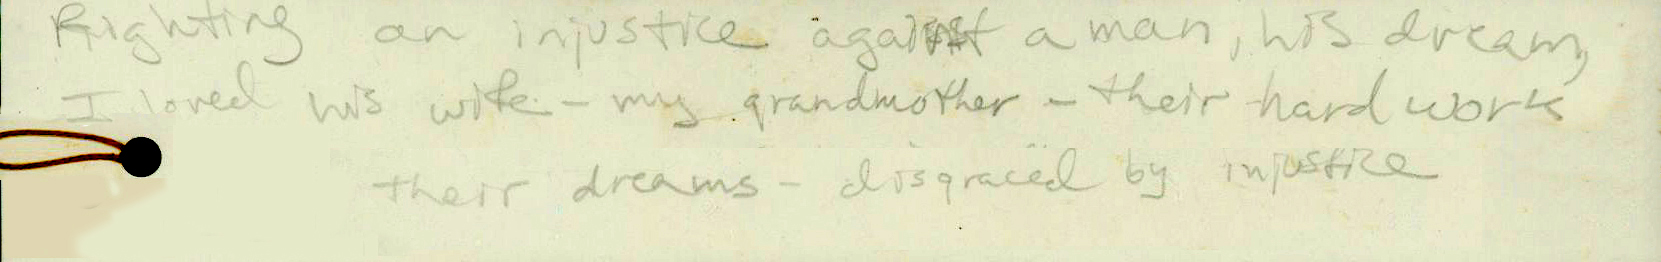 Righting an injustice against a man, his dream,
I loved his wife - my grandmother - their hard work
their dreams - disgraced by injustice